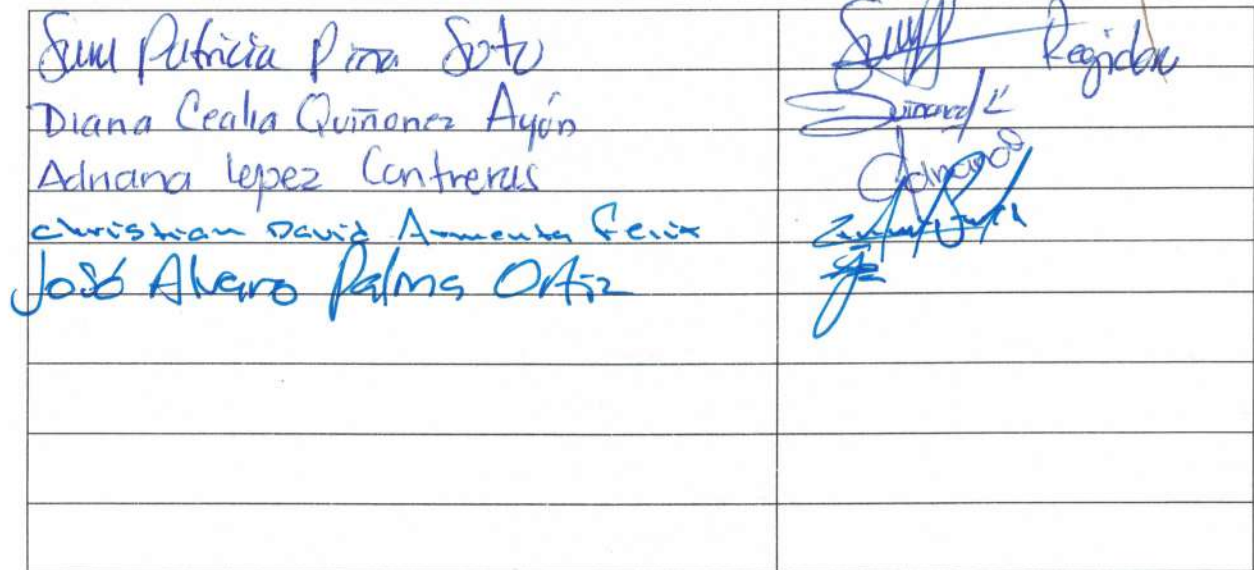 Patricia Piña Soto Regidora
Diana Cecilia Quiñonez Ayón
Adriana Lopez Contreras Adriana
Christian David Armenta Felix
José Alvaro Palma Ortiz